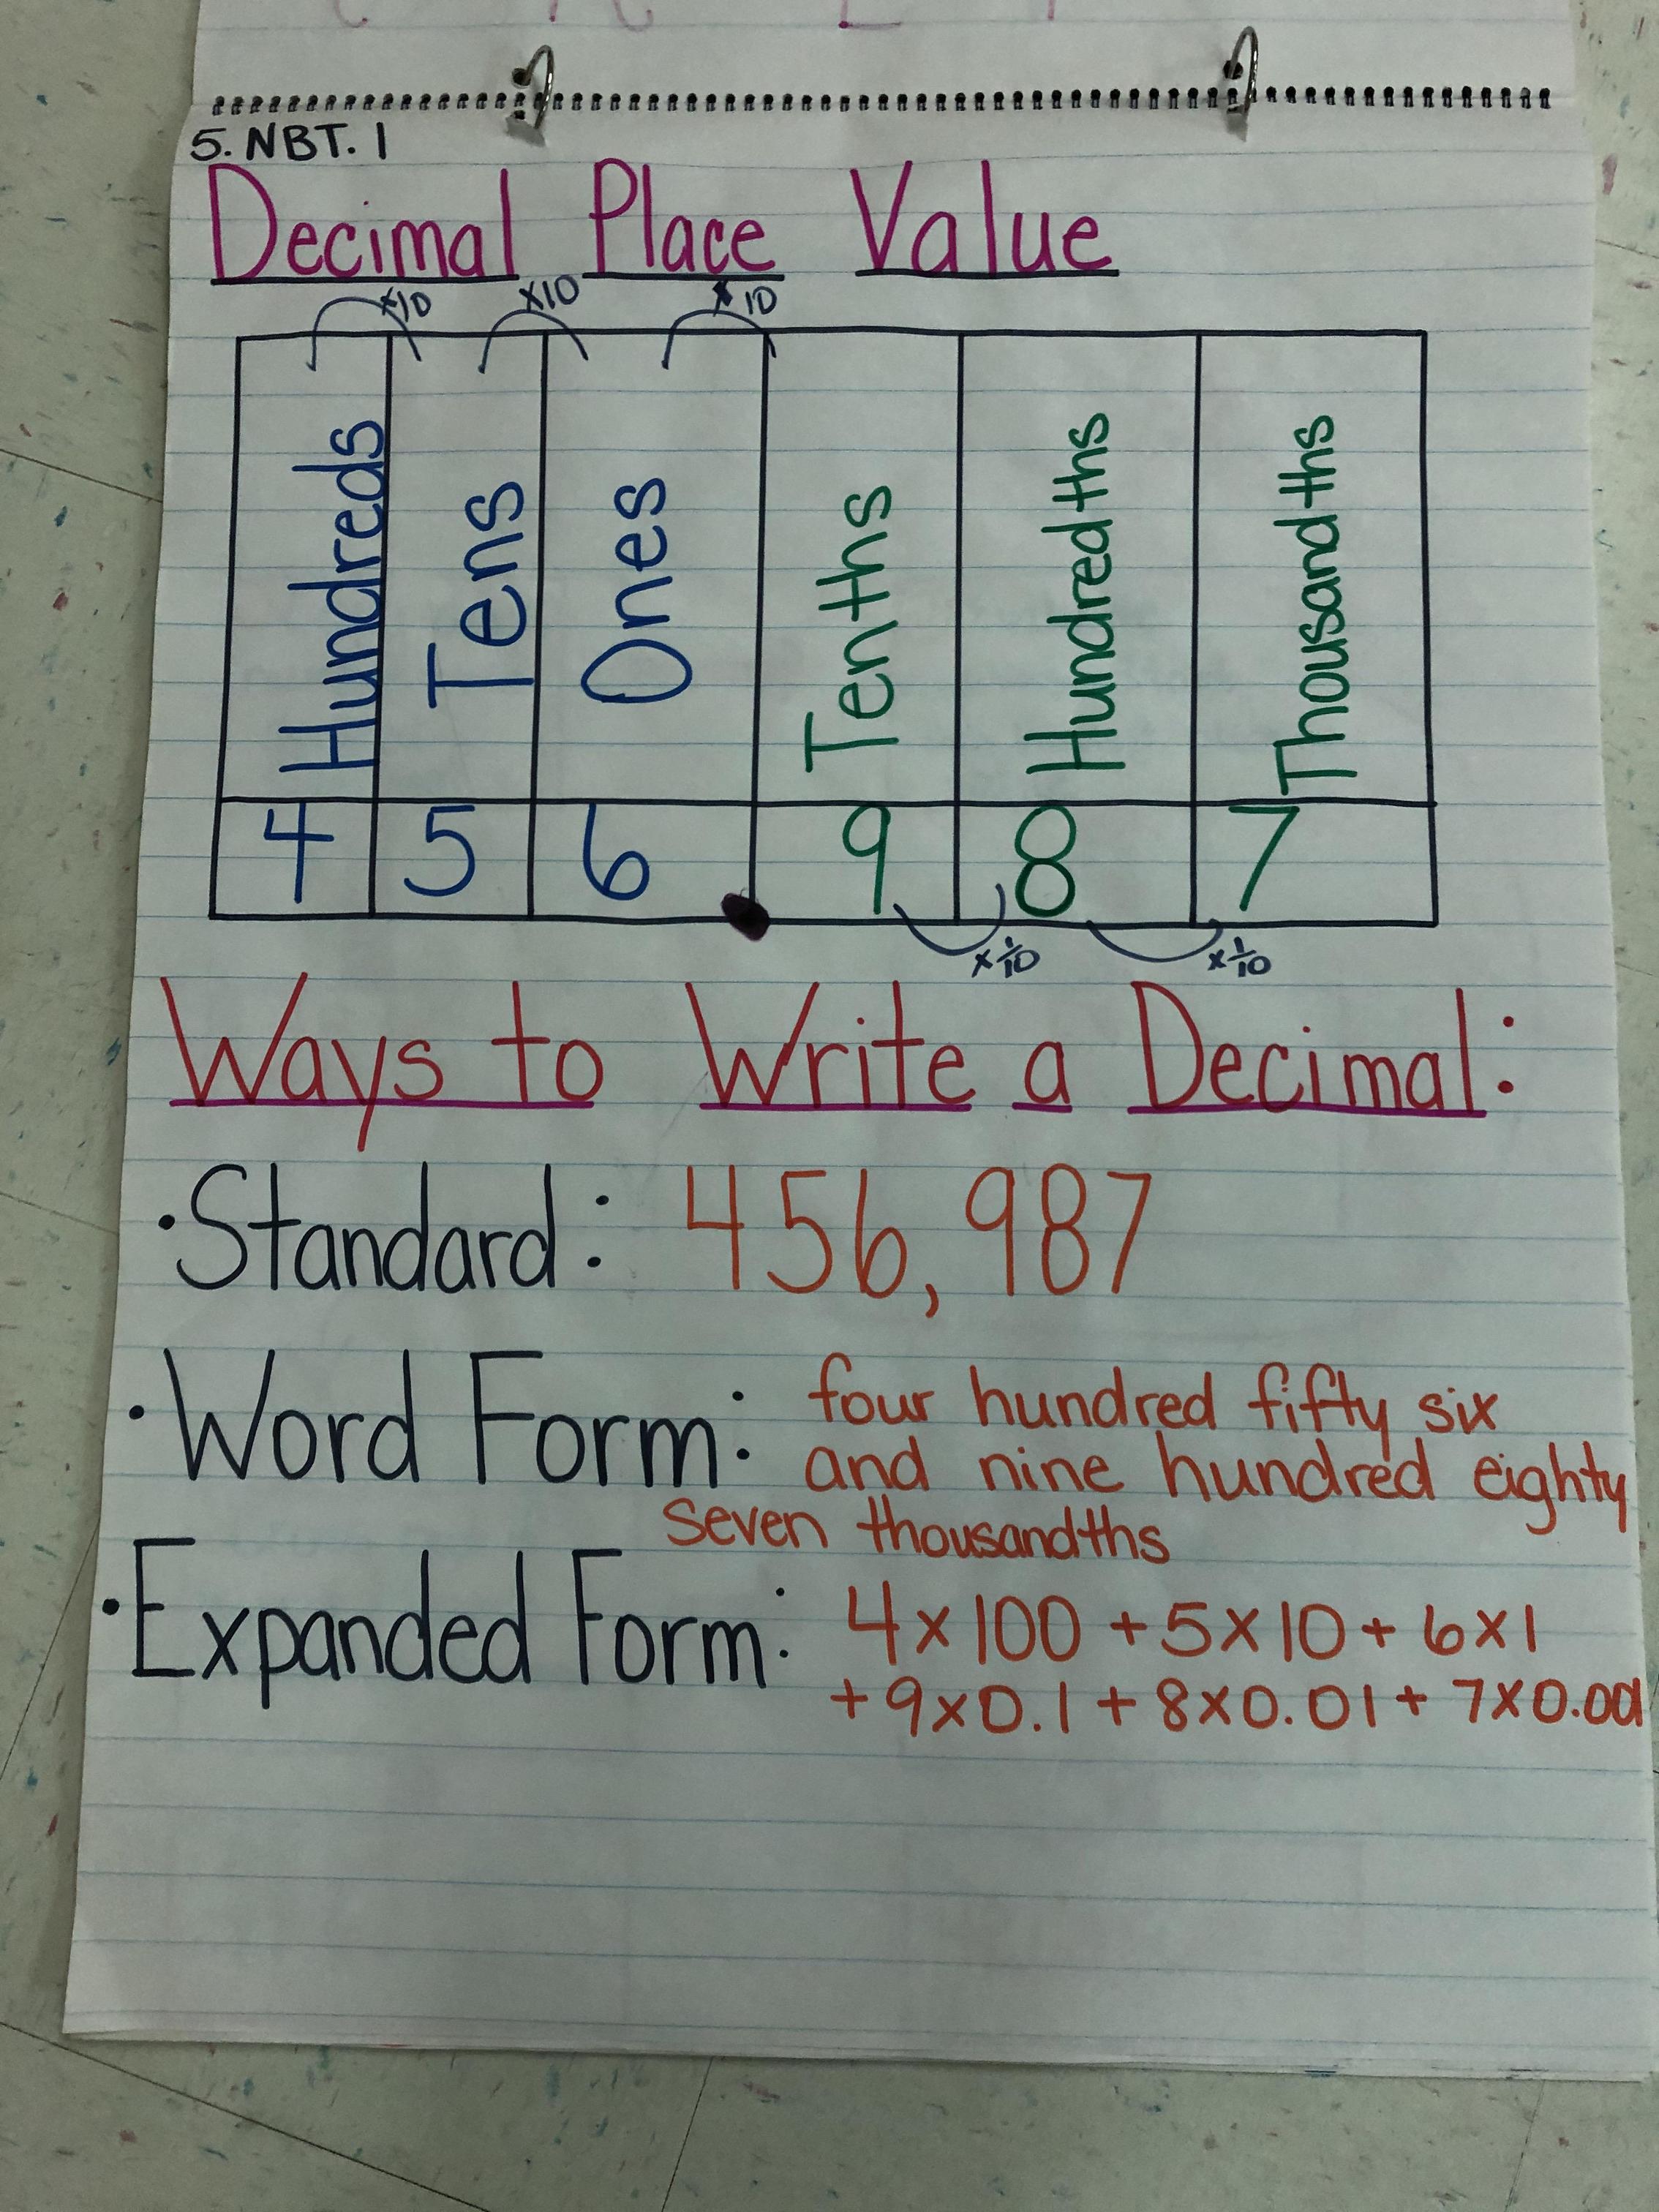 5. NBT. 1
Decimal Place Value
x10 x10 x 10
Hundreds Tens Ones Tenths Hundredths Thousandths
4 5 6 . 9 8 7
x 1/10 x 1/10
Ways to Write a Decimal:
• Standard: 456,987
• Word Form: four hundred fifty six
and nine hundred eighty
seven thousandths
• Expanded Form: 4x100 + 5x10 + 6x1
+ 9x0.1 + 8x0.01 + 7x0.001